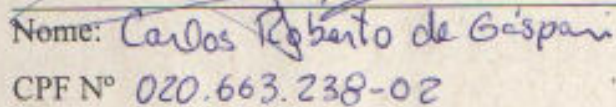 Nome: Carlos Roberto de Gáspari
CPF Nº 020.663.238-02